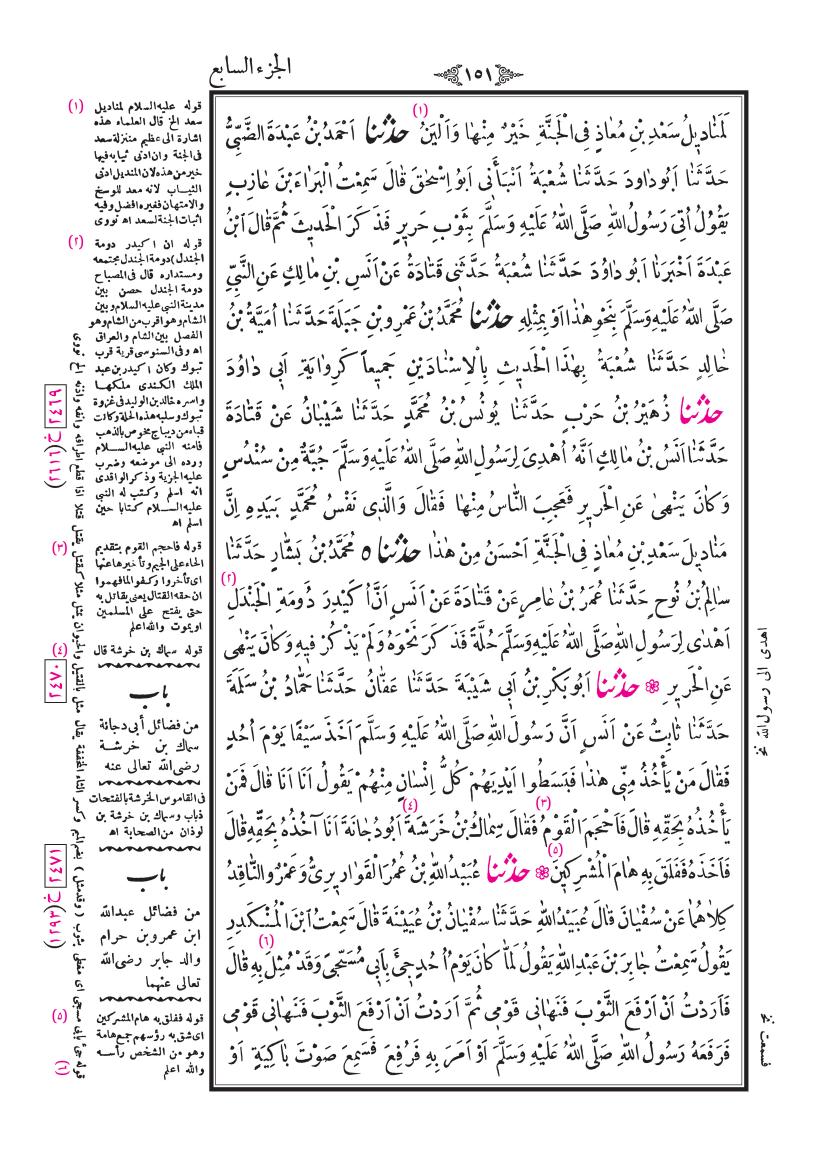 ١٥١
الجزء السابع
لَمَنَادِيلُ سَعْدِ بْنِ مُعَاذٍ فِى الْجَنَّةِ خَيْرٌ مِنْهَا وَاَلْيَنُ (١) حدثنا اَحْمَدُ بْنُ عَبْدَةَ الضَّبِّىُّ
حَدَّثَنَا اَبُو دَاوُدَ حَدَّثَنَا شُعْبَةُ اَنْبَأَنِى اَبُو اِسْحٰقَ قَالَ سَمِعْتُ الْبَرَاءَ بْنَ عَازِبٍ
يَقُولُ اُتِىَ رَسُولُ اللهِ صَلَّى اللهُ عَلَيْهِ وَسَلَّمَ بِثَوْبِ حَرِيرٍ فَذَكَرَ الْحَدِيثَ ثُمَّ قَالَ ابْنُ
عَبْدَةَ اَخْبَرَنَا اَبُو دَاوُدَ حَدَّثَنَا شُعْبَةُ حَدَّثَنِى قَتَادَةُ عَنْ اَنَسِ بْنِ مَالِكٍ عَنِ النَّبِىِّ
صَلَّى اللهُ عَلَيْهِ وَسَلَّمَ بِنَحْوِ هٰذَا اَوْ بِمِثْلِهِ حدثنا مُحَمَّدُ بْنُ عَمْرِو بْنِ جَبَلَةَ حَدَّثَنَا اُمَيَّةُ بْنُ
خَالِدٍ حَدَّثَنَا شُعْبَةُ بِهٰذَا الْحَدِيثِ بِالْاِسْنَادَيْنِ جَمِيعاً كَرِوَايَةِ اَبِى دَاوُدَ
حدثنا زُهَيْرُ بْنُ حَرْبٍ حَدَّثَنَا يُونُسُ بْنُ مُحَمَّدٍ حَدَّثَنَا شَيْبَانُ عَنْ قَتَادَةَ
حَدَّثَنَا اَنَسُ بْنُ مَالِكٍ اَنَّهُ اُهْدِىَ لِرَسُولِ اللهِ صَلَّى اللهُ عَلَيْهِ وَسَلَّمَ جُبَّةٌ مِنْ سُنْدُسٍ
وَكَانَ يَنْهٰى عَنِ الْحَرِيرِ فَعَجِبَ النَّاسُ مِنْهَا فَقَالَ وَالَّذِى نَفْسُ مُحَمَّدٍ بِيَدِهِ اِنَّ
مَنَادِيلَ سَعْدِ بْنِ مُعَاذٍ فِى الْجَنَّةِ اَحْسَنُ مِنْ هٰذَا حدثناه مُحَمَّدُ بْنُ بَشَّارٍ حَدَّثَنَا
سَالِمُ بْنُ نُوحٍ حَدَّثَنَا عُمَرُ بْنُ عَامِرٍ عَنْ قَتَادَةَ عَنْ اَنَسٍ اَنَّ اُكَيْدِرَ دُومَةِ الْجَنْدَلِ (٢)
اَهْدٰى لِرَسُولِ اللهِ صَلَّى اللهُ عَلَيْهِ وَسَلَّمَ حُلَّةً فَذَكَرَ نَحْوَهُ وَلَمْ يَذْكُرْ فِيهِ وَكَانَ يَنْهٰى
عَنِ الْحَرِيرِ حدثنا اَبُو بَكْرِ بْنُ اَبِى شَيْبَةَ حَدَّثَنَا عَفَّانُ حَدَّثَنَا حَمَّادُ بْنُ سَلَمَةَ
حَدَّثَنَا ثَابِتٌ عَنْ اَنَسٍ اَنَّ رَسُولَ اللهِ صَلَّى اللهُ عَلَيْهِ وَسَلَّمَ اَخَذَ سَيْفًا يَوْمَ اُحُدٍ
فَقَالَ مَنْ يَأْخُذُ مِنِّى هٰذَا فَبَسَطُوا اَيْدِيَهُمْ كُلُّ اِنْسَانٍ مِنْهُمْ يَقُولُ اَنَا اَنَا قَالَ فَمَنْ
يَأْخُذُهُ بِحَقِّهِ قَالَ فَاَحْجَمَ الْقَوْمُ (٣) فَقَالَ سِمَاكُ بْنُ خَرَشَةَ (٤) اَبُو دُجَانَةَ اَنَا آخُذُهُ بِحَقِّهِ قَالَ
فَاَخَذَهُ فَفَلَقَ بِهِ هَامَ الْمُشْرِكِينَ (٥) حدثنا عُبَيْدُ اللهِ بْنُ عُمَرَ الْقَوَارِيرِىُّ وَعَمْرٌو النَّاقِدُ
كِلَاهُمَا عَنْ سُفْيَانَ قَالَ عُبَيْدُ اللهِ حَدَّثَنَا سُفْيَانُ بْنُ عُيَيْنَةَ قَالَ سَمِعْتُ ابْنَ الْمُنْكَدِرِ
يَقُولُ سَمِعْتُ جَابِرَ بْنَ عَبْدِ اللهِ يَقُولُ لَمَّا كَانَ يَوْمُ اُحُدٍ جِىءَ بِاَبِى مُسَجًّى (٦) وَقَدْ مُثِلَ بِهِ قَالَ
فَاَرَدْتُ اَنْ اَرْفَعَ الثَّوْبَ فَنَهَانِى قَوْمِى ثُمَّ اَرَدْتُ اَنْ اَرْفَعَ الثَّوْبَ فَنَهَانِى قَوْمِى
فَرَفَعَهُ رَسُولُ اللهِ صَلَّى اللهُ عَلَيْهِ وَسَلَّمَ اَوْ اَمَرَ بِهِ فَرُفِعَ فَسَمِعَ صَوْتَ بَاكِيَةٍ اَوْ
اهدى الى رسول الله نخ
فسمعت نخ
(١) قوله عليه السلام لمناديل
سعد الخ قال العلماء هذه
اشارة الى عظيم منزلة سعد
فى الجنة وان ادنى ثيابه فيها
خير من هذه لان المنديل ادنى
الثياب لانه معد للوسخ
والامتهان فغيره افضل وفيه
اثبات الجنة لسعد اه نووى
(٢) قوله ان اكيدر دومة
الجندل) دومة الجندل مجتمعه
ومستداره قال فى المصباح
دومة الجندل حصن بين
مدينة النبى عليه السلام وبين
الشام وهو اقرب من الشام وهو
الفصل بين الشام والعراق
اه وفى السنوسى قرية قرب
تبوك وكان اكيدر بن عبد
الملك الكندى ملكها
واسره خالد بن الوليد فى غزوة
تبوك وسلبه هذه الحلة وكانت
قباء من ديباج مخوص بالذهب
فامنه النبى عليه السلام
ورده الى موضعه وضرب
عليه الجزية وذكر الواقدى
انه اسلم وكتب له النبى
عليه السلام كتابا حين
اسلم اه
(٣) قوله فاحجم القوم بتقديم
الحاء على الجيم وتأخيرها عنها
اى تأخروا وكفوا لما فهموا
ان حقه القتال يعنى يقاتل به
حتى يفتح على المسلمين
او يموت والله اعلم
(٤) قوله سماك بن خرشة قال
باب
من فضائل أبى دجانة
سماك بن خرشة
رضى الله تعالى عنه
فى القاموس الخرشة بالفتحات
ذباب وسماك بن خرشة بن
لوذان من الصحابة اه
باب
من فضائل عبدالله
ابن عمرو بن حرام
والد جابر رضى الله
تعالى عنهما
(٥) قوله ففلق به هام المشركين
اى شق به رؤسهم جمع هامة
وهو من الشخص رأسه
والله اعلم
(٦) قوله جىء بابى مسجى اى مغطى بثوب (وقد مثل) بضم الميم وكسر الثاء المخففة يقال مثل بالقتيل والحيوان يمثل مثلا كقتل يقتل قتلا اذا قطع اطرافه وانفه واذنه الخ نووى
٢٤٦٩
خ (٢٦١٦)
٢٤٧٠
٢٤٧١
خ (١٢٩٣)